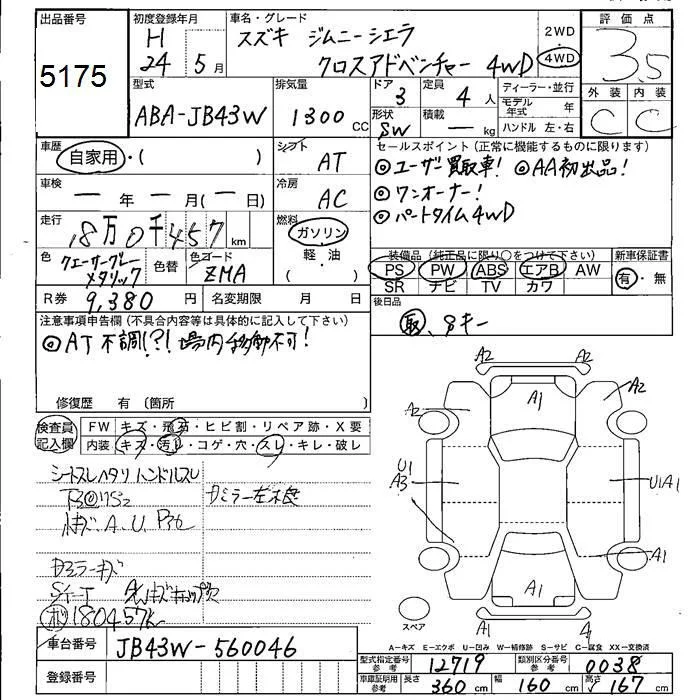 出品番号
5175
初度登録年月
H
24 5月
車名・グレード
スズキ ジムニーシエラ
クロスアドベンチャー 4WD
2WD
4WD
評価点
3.5
外装 内装
C C
型式
ABA-JB43W
排気量
1300 CC
ドア 3
形状 SW
定員 4人
積載 ー kg
ディーラー・並行
モデル年式 年
ハンドル 左・右
車歴
自家用・( )
シフト
AT
車検
ー年ー月(ー日)
冷房
AC
セールスポイント (正常に機能するものに限ります)
◎ユーザー買取車! ◎AA初出品!
◎ワンオーナー!
◎パートタイム4WD
走行
8万0千457km
燃料
ガソリン
軽・油
( )
色
クエーサーグレーメタリック
色替
色コード
ZMA
装備品 (純正品に限り○をつけて下さい)
PS PW ABS エアB AW
SR ナビ TV カワ
新車保証書
有・無
R券 9,380円
名変期限 月 日
後日品
取、Sキー
注意事項申告欄 (不具合内容等は具体的に記入して下さい)
◎AT不調!?!場内移動不可!
修復歴 有 (箇所
検査員記入欄
FW キズ・飛石・ヒビ割・リペア跡・X要
内装 キズ・汚レ・コゲ・穴・スレ・キレ・破レ
シートスレヘタリ ハンドルスレ
Dミラー左不良
A.U.
Dミラーキズ
180457k
A2 A2
A1
A2 A2
U1
A3
U1A1
A1
A1
スペア
車台番号
JB43W-560046
登録番号
A-キズ E-エクボ U-凹み W-補修跡 S-サビ C-腐食 XX-交換済
型式指定番号参考 12719
類別区分番号参考 0038
車庫証明用参考 長さ 360cm 幅 160cm 高さ 167cm